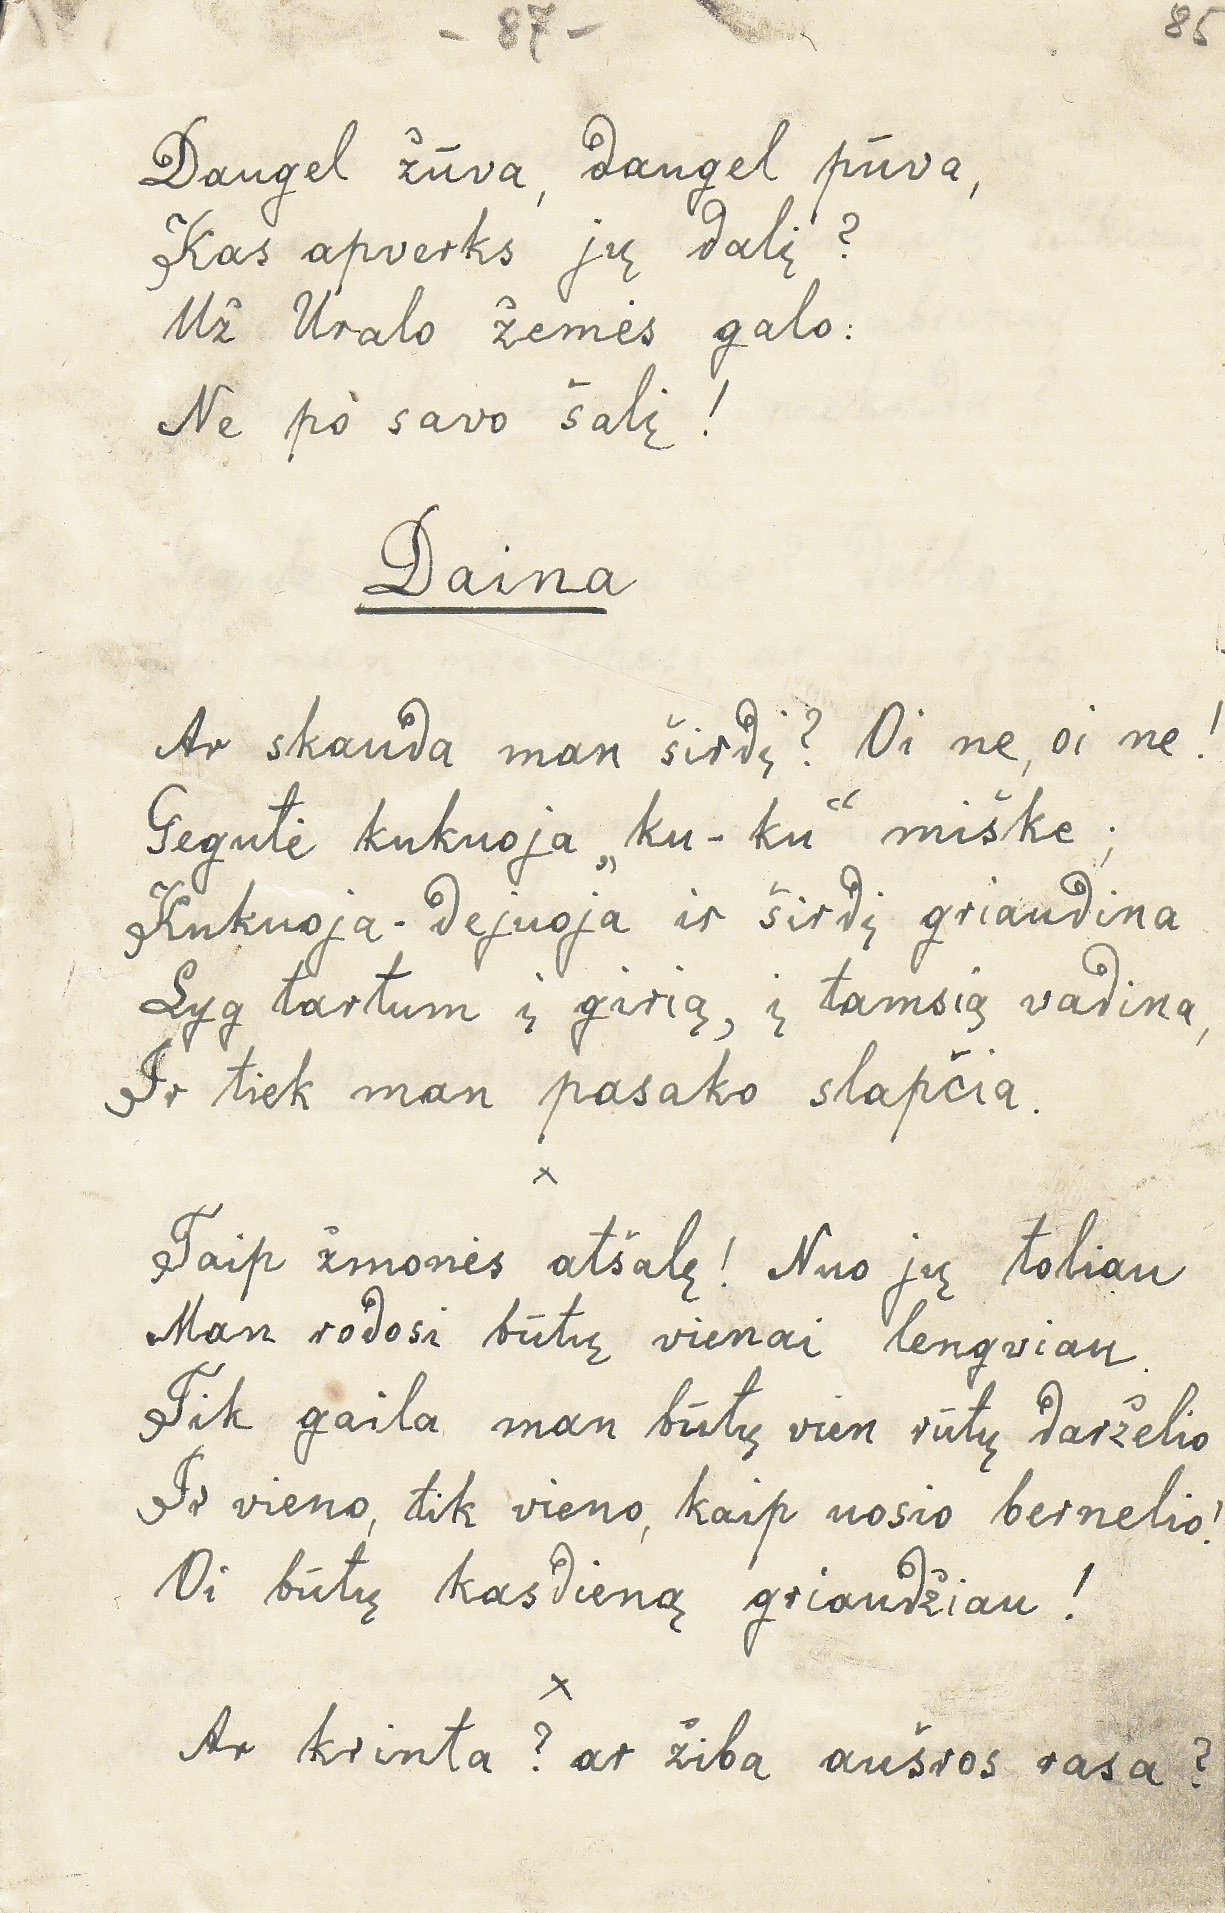 - 87 -
85
Daugel žūva, daugel pūva,
Kas apverks jų dalį?
Už Uralo žemės galo:
Ne po savo šalį!
Daina
Ar skauda man širdį? Oi ne, oi ne!
Gegutė kukuoja „ku-ku“ miške;
Kukuoja-dejuoja ir širdį griaudina
Lyg tartum į girią, į tamsią vadina,
Ir tiek man pasako slapčia.
x
Taip žmonės atšalę! Nuo jų toliau
Man rodosi būtų vienai lengviau.
Tik gaila man būtų vien rūtų darželio
Ir vieno, tik vieno, kaip uosio bernelio!
Oi būtų kasdieną griaudžiau!
x
Ar krinta? ar žiba aušros rasa?